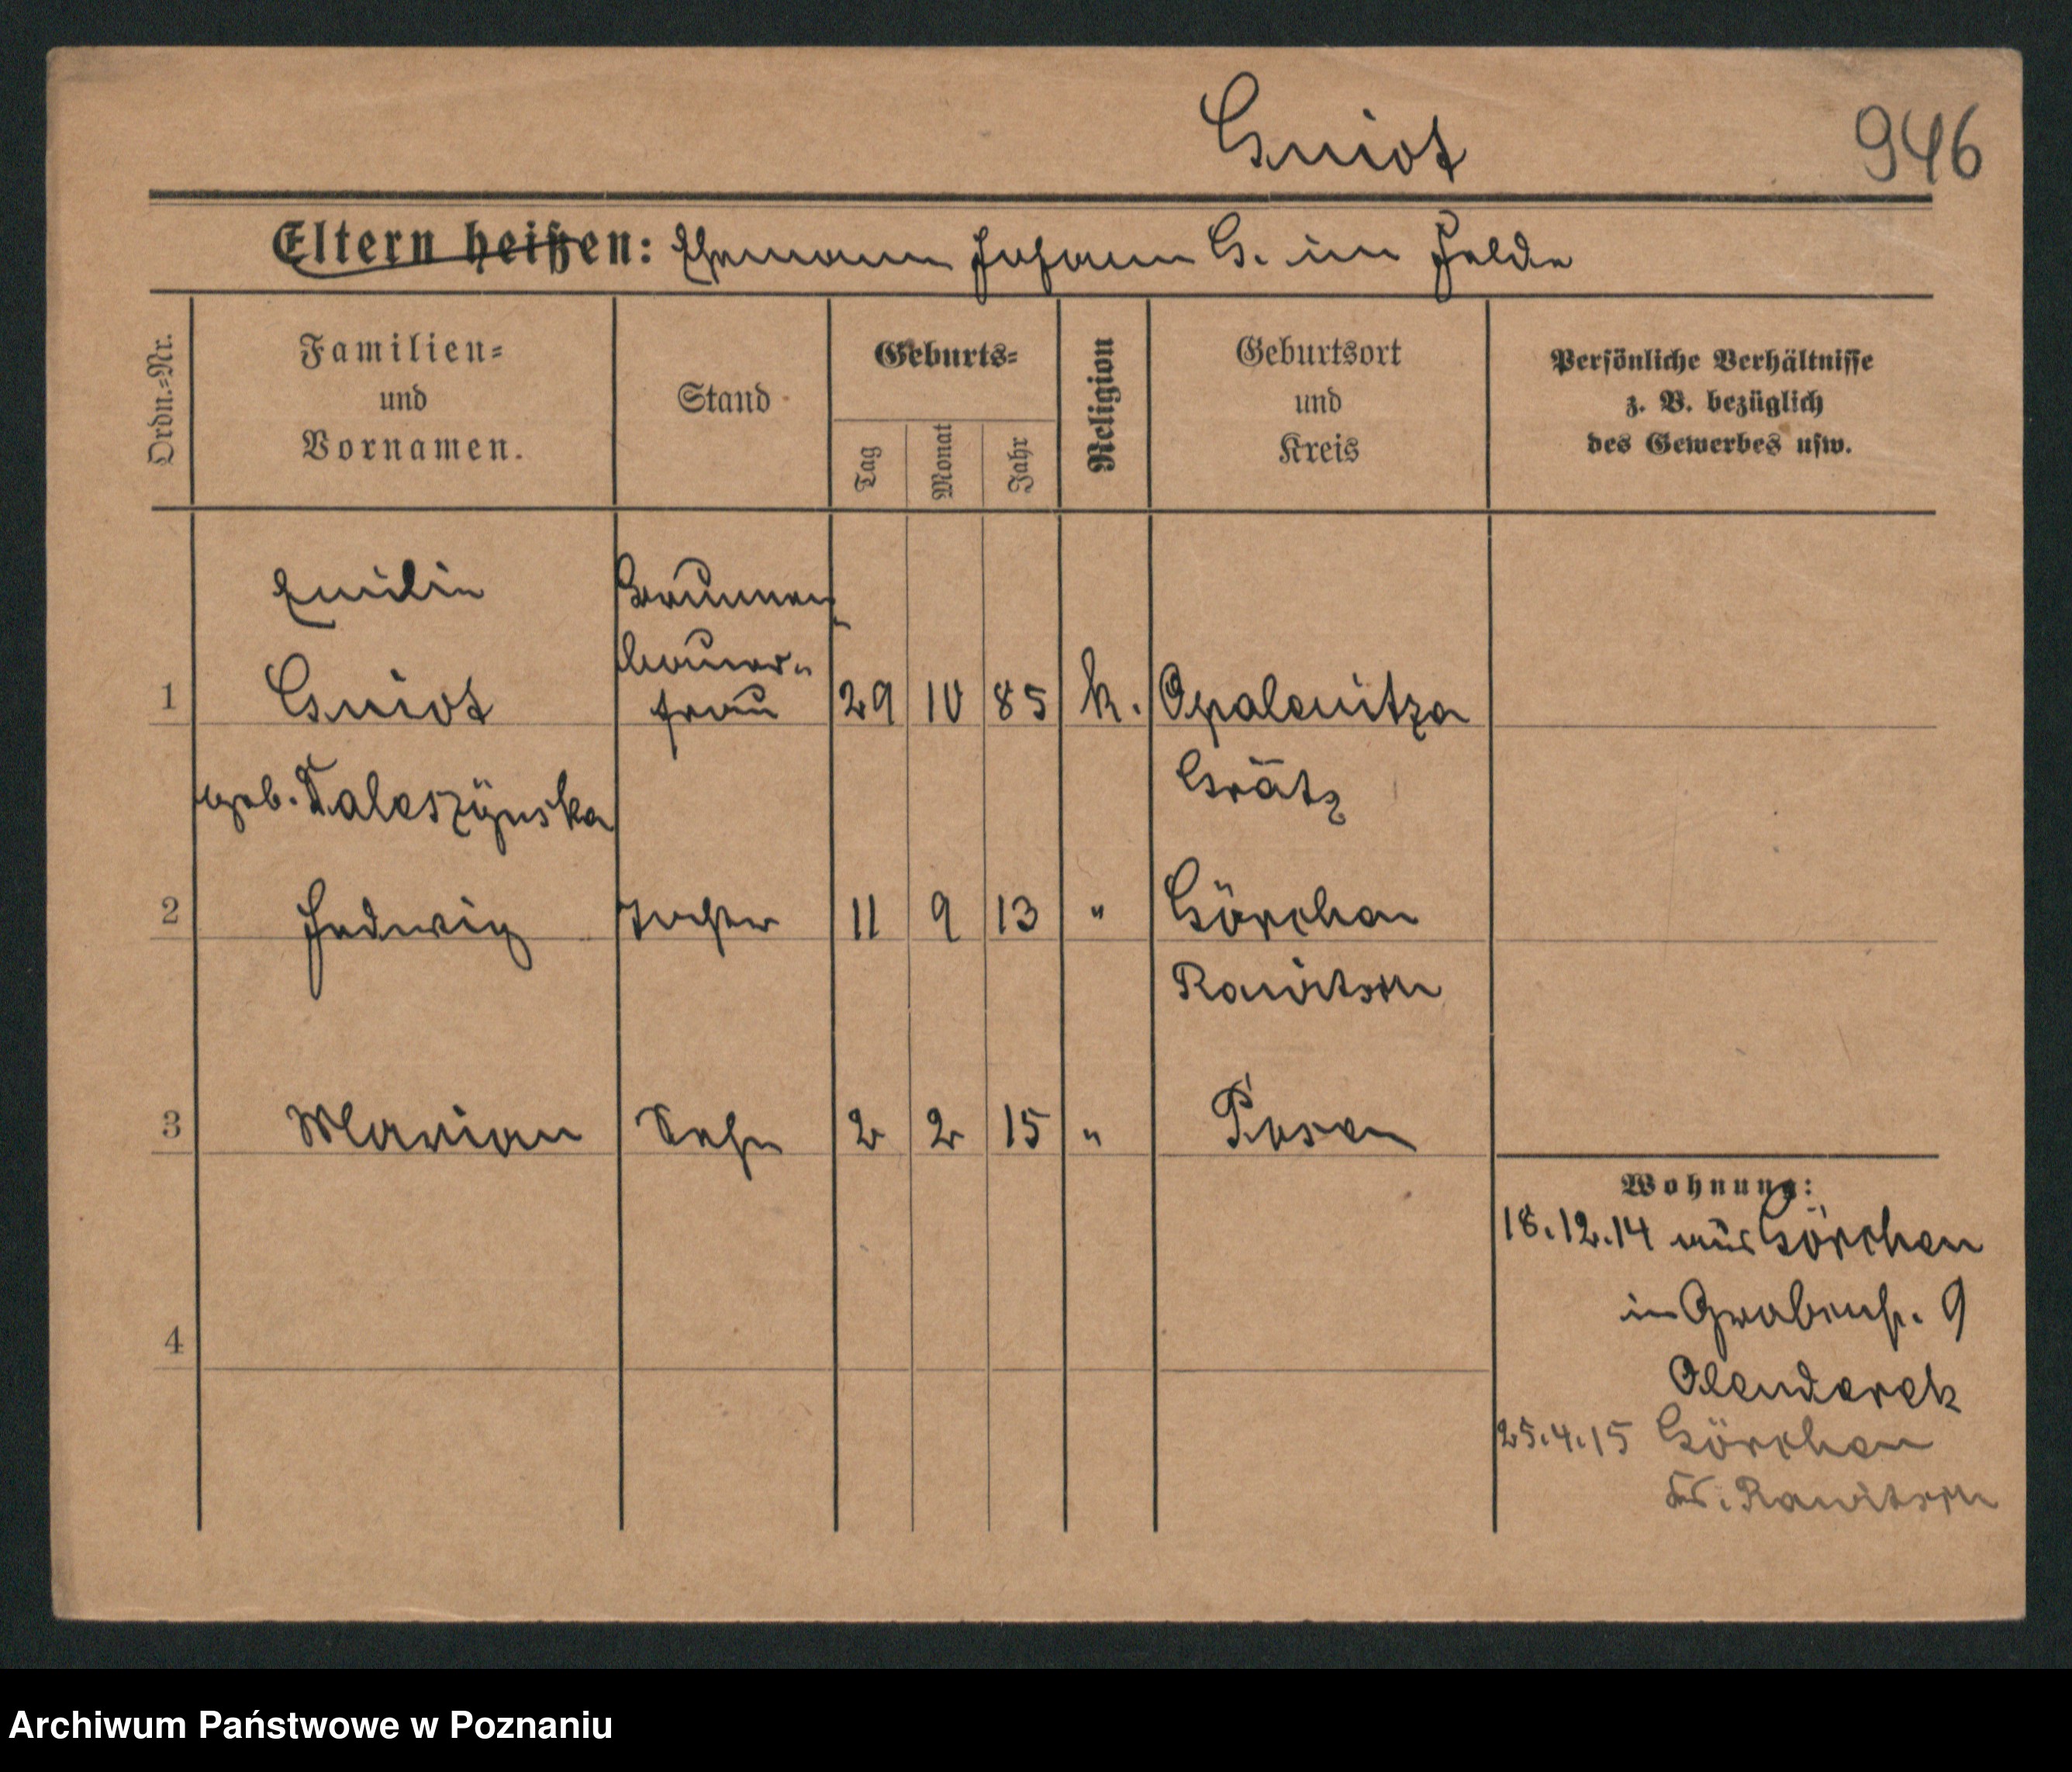 Gniot
946
Eltern heißen: Ehemann Johann G. im Felde
Ordn.-Nr.
Familien-
und
Vornamen.
Stand
Geburts-
Tag
Monat
Jahr
Religion
Geburtsort
und
Kreis
Persönliche Verhältnisse
z. B. bezüglich
des Gewerbes usw.
Emilie
Brunnen
bauer-
1 Gniot frau 29 10 85 k. Opalenitza
geb. Taleszynska
Grätz
2 Hedwig Tochter 11 9 13 " Görchen
Rawitsch
3 Marian Sohn 2 2 15 " Posen
Wohnung:
18.12.14 aus Görchen
in Grabenstr. 9
4
Olenderek
25.4.15 Görchen
Kr. Rawitsch
Archiwum Państwowe w Poznaniu